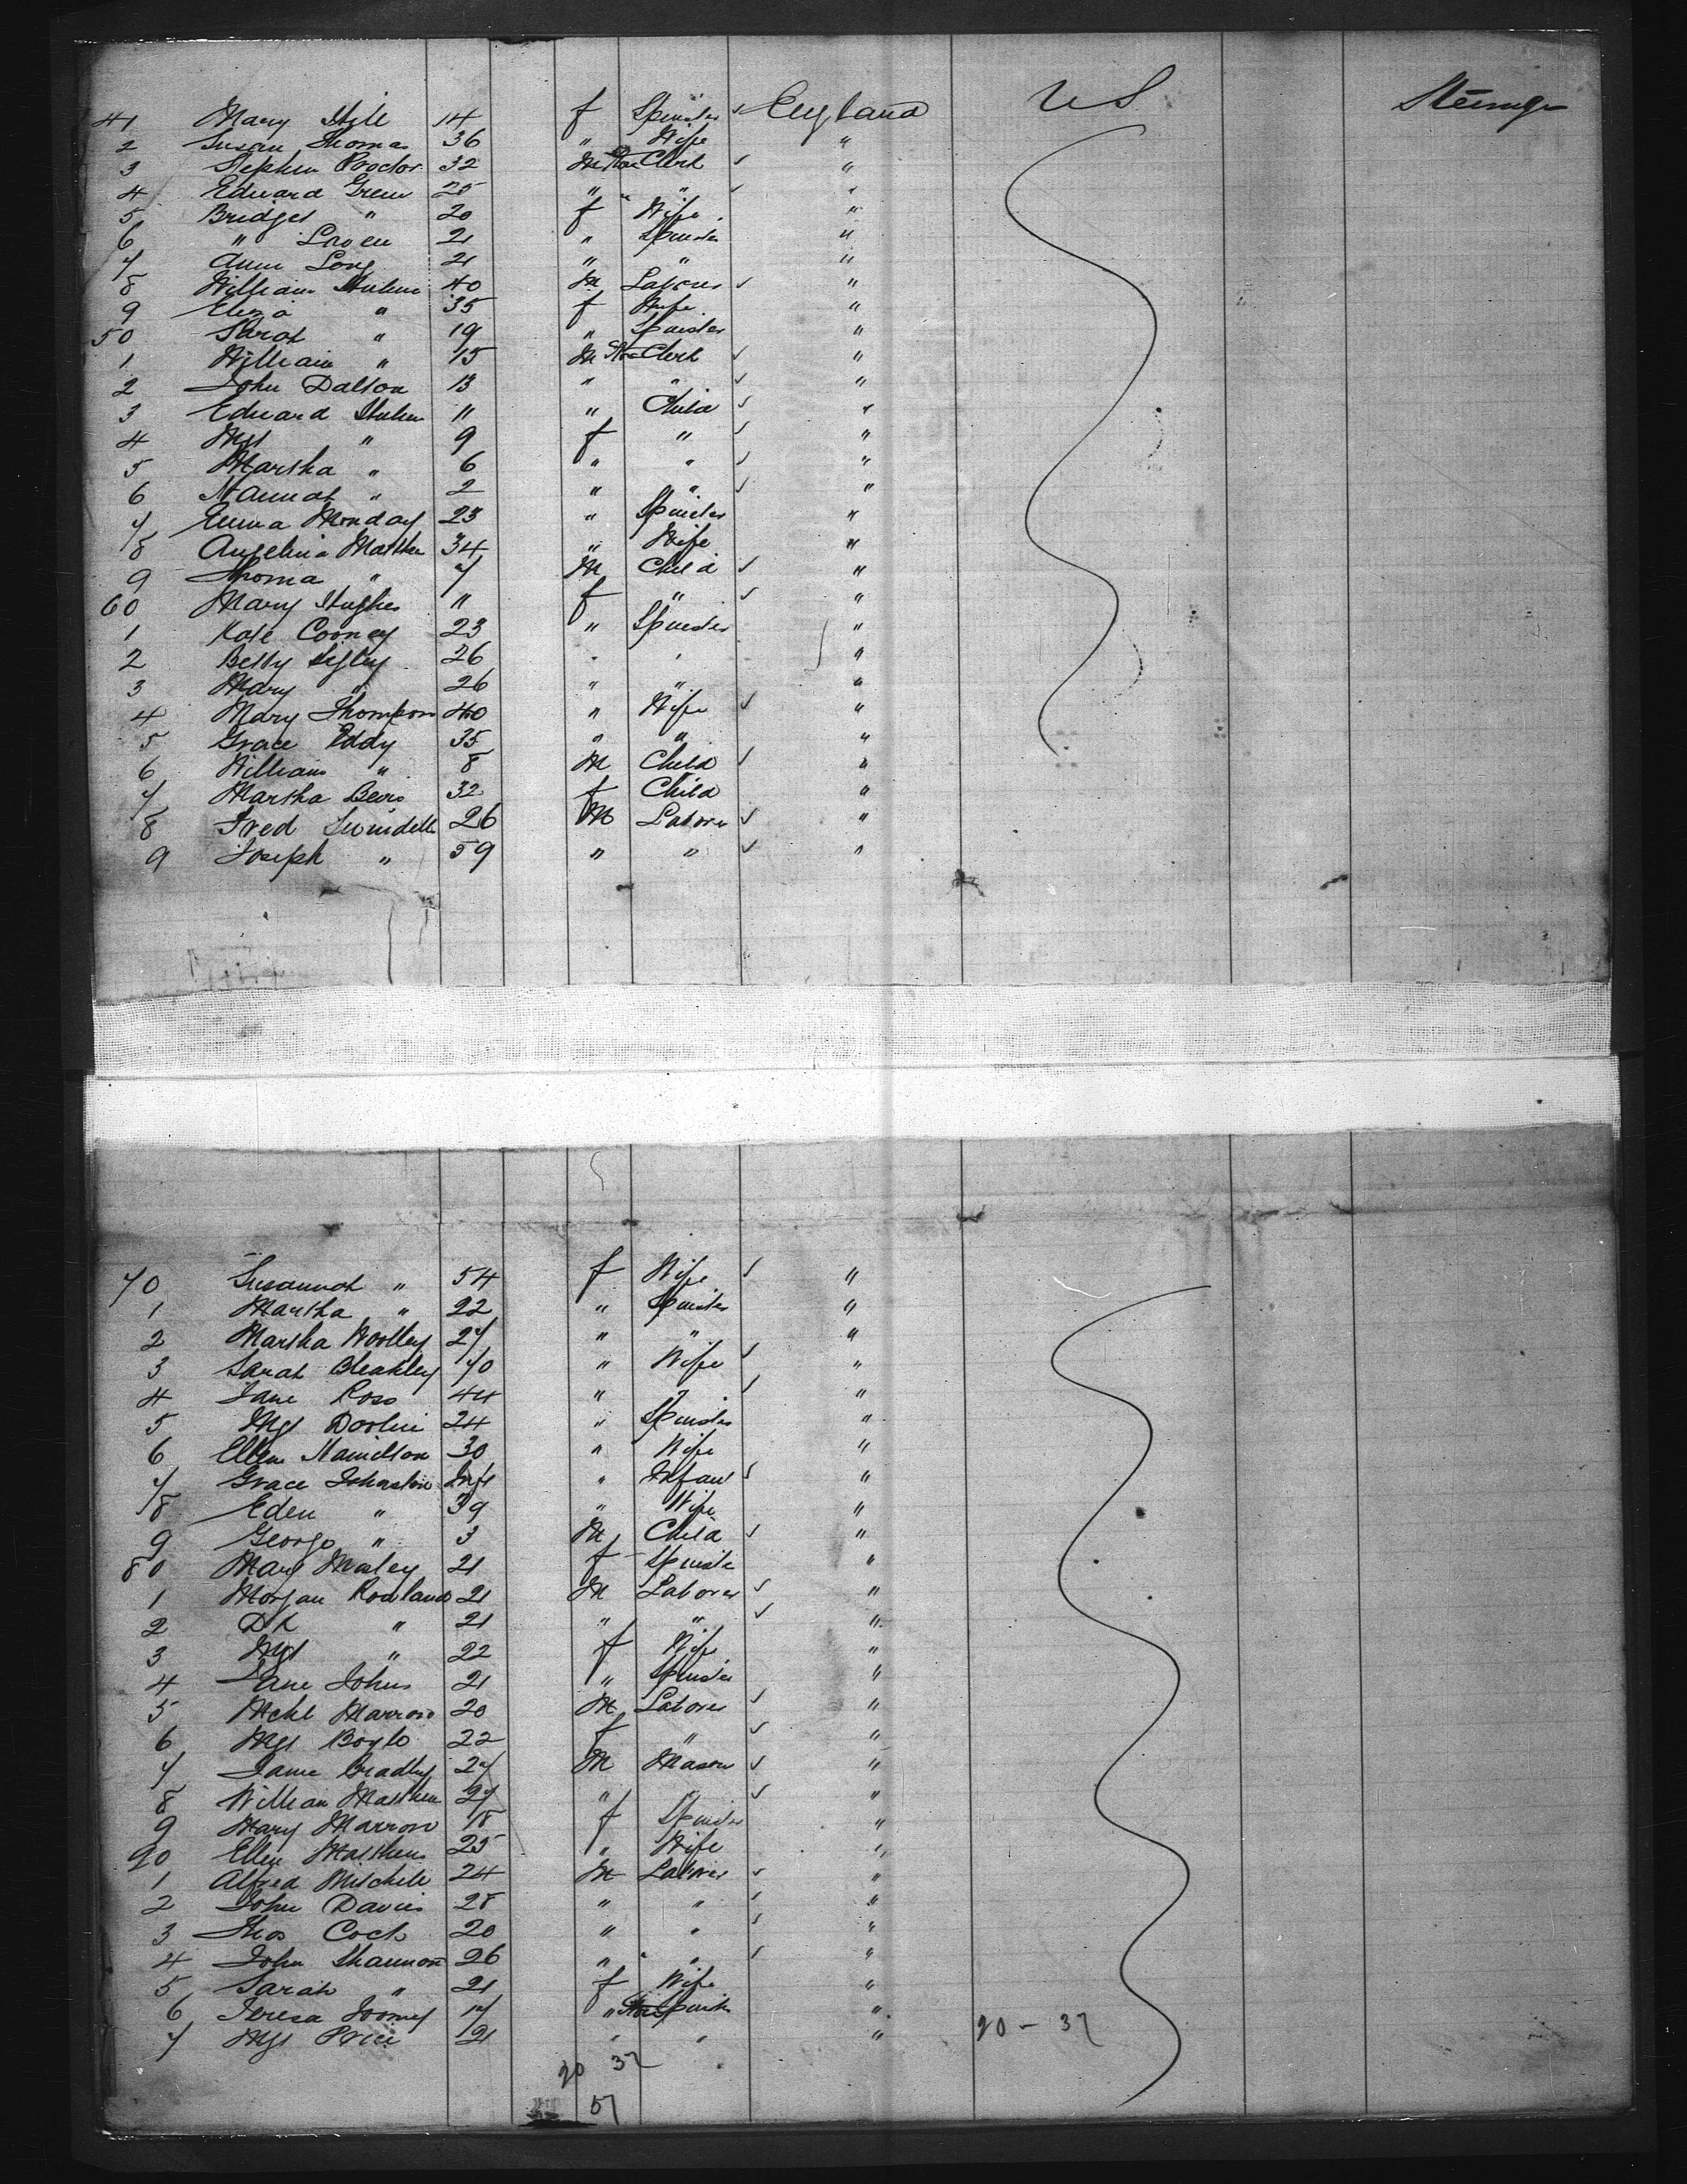 41 Mary Hill 14 f Spinster ✓ England US Steerage
2 Susan Thomas 36 " Wife "
3 Stephen Proctor 32 M Clerk ✓ "
4 Edward Green 25 " " ✓ "
5 Bridget " 20 f Wife "
6 " 21 " Spinster "
7 Ann Long 21 " " "
8 William 40 M Laborer ✓ "
9 Eliza " 35 f Wife "
50 Sarah " 19 " Spinster "
1 William " 15 M Clerk ✓ "
2 John Dalton 13 " " ✓ "
3 Edward 11 " Child ✓ "
4 Mgt " 9 f " ✓ "
5 Martha " 6 " " ✓ "
6 Hannah " 2 " " ✓ "
7 Emma Monday 23 " Spinster "
8 Angelina Matthew 34 " Wife "
9 Thomas " 7 M Child ✓ "
60 Mary Hughes 11 f " ✓ "
1 Kate Cooney 23 " Spinster "
2 Betty 26 " " "
3 Mary " 26 " " "
4 Mary Thompson 40 " Wife ✓ "
5 Grace Eddy 35 " " "
6 William " 8 M Child ✓ "
7 Martha 32 f Child "
8 Fred Swindells 26 M Laborer ✓ "
9 Joseph " 59 " " ✓ "
70 Susannah " 54 f Wife ✓ "
1 Martha " 22 " Spinster "
2 Martha Woolley 27 " " "
3 Sarah Bleakley 70 " Wife ✓ "
4 Jane Ross 44 " " ✓ "
5 Mgt Doolin 24 " Spinster "
6 Ellen Hamilton 30 " Wife "
7 Grace Johnston Inft " Infant ✓ "
8 Eden " 39 " Wife "
9 George " 3 M Child ✓ "
80 Mary 21 f Spinster "
1 Morgan Rowland 21 M Laborer ✓ "
2 " 21 " " ✓ "
3 Mgt " 22 f Wife "
4 Jane Johns 21 " Spinster "
5 Mchl Marron 20 M Laborer ✓ "
6 Mgt Boyle 22 f " ✓ "
7 Bradley 27 M Mason ✓ "
8 William Matthew 27 " " ✓ "
9 Mary Marron 18 f Spinster "
90 Ellen Matthews 25 " Wife "
1 Alfred Mitchell 24 M Laborer ✓ "
2 John Davies 28 " " ✓ "
3 Thos Cock 20 " " ✓ "
4 John Shannon 26 " " ✓ "
5 Sarah " 21 f Wife "
6 Teresa Toomey 17 " Spinster "
7 Mgt Price 21 " " " 20 - 37
20 37
57